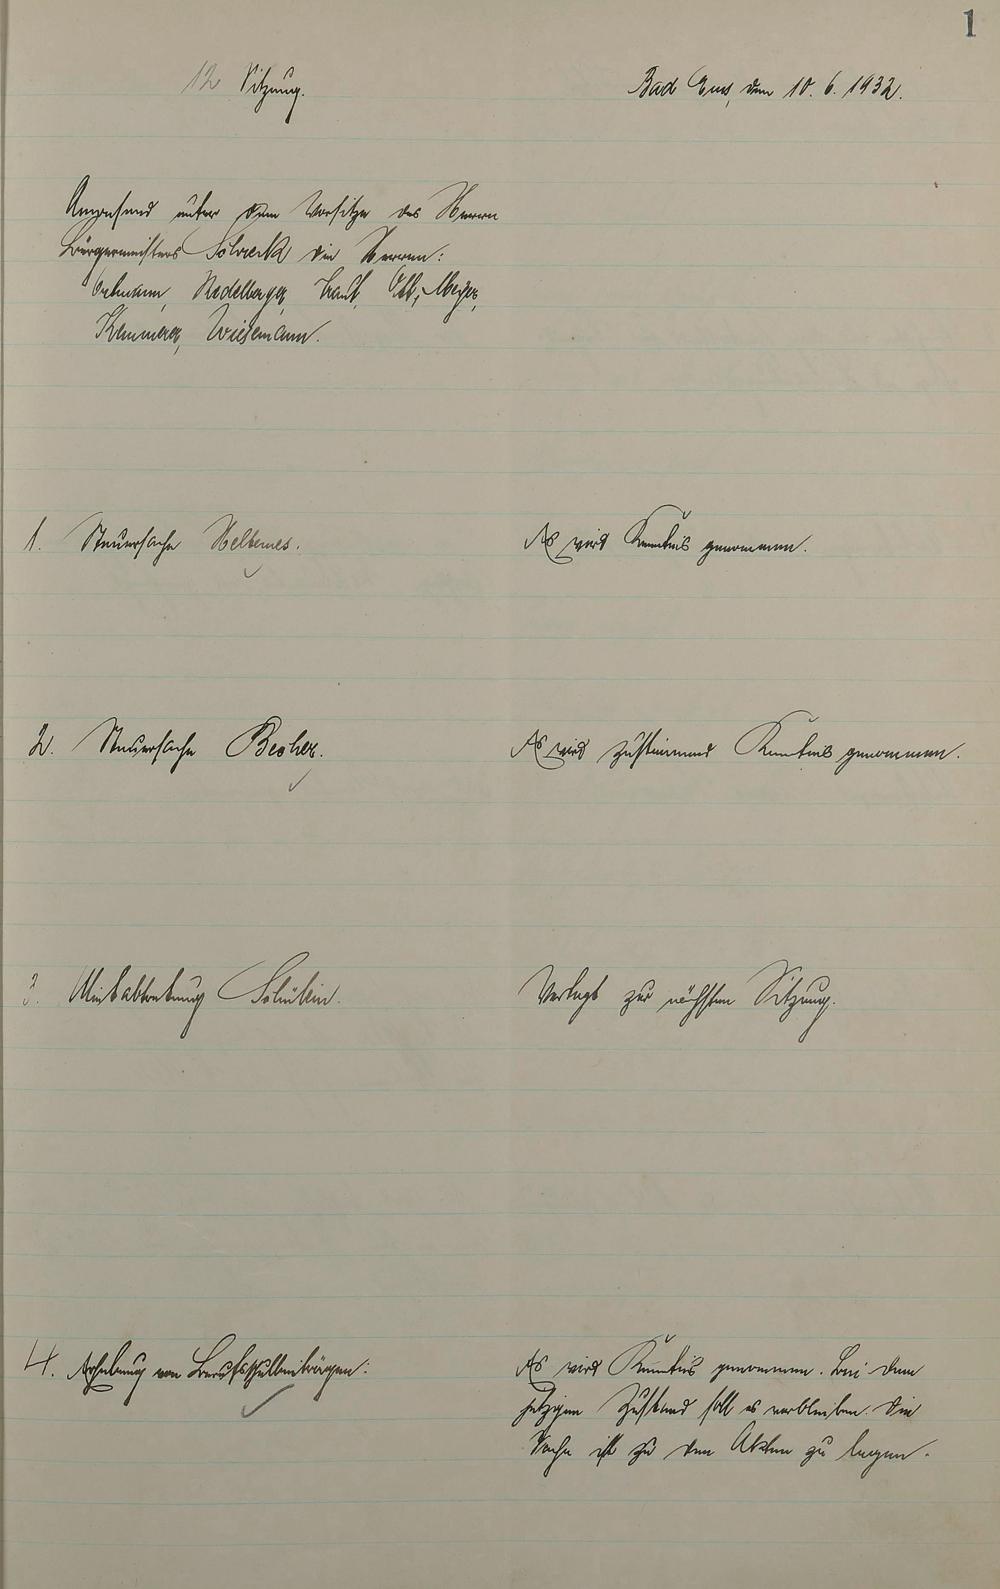 1
12 Sitzung.
Bad Ems, den 10. 6. 1932.
Anwesend unter dem Vorsitze des Herrn
Bürgermeisters Schreck die Herren:
Ortmann, Nedelberger, Kraut, Ott, Meyer,
Kemmerer, Wiesemann.
1. Steuersache Helbemes.
Es wird Kenntnis genommen.
2. Steuersache Becher.
Es wird zustimmend Kenntnis genommen.
3. Mietabtretung Schülein.
Verlegt zur nächsten Sitzung.
4. Erhebung von Berufsschulbeiträgen:
Es wird Kenntnis genommen. Bei dem
jetzigen Zustand soll es verbleiben. Die
Sache ist zu den Akten zu legen.